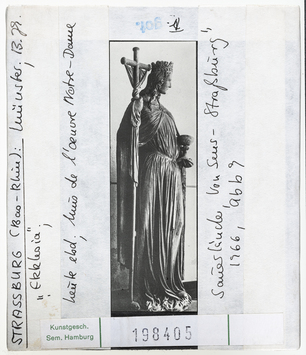 STRASSBURG (Bas-Rhin): Münster, 13. Jh.
"Ekklesia";
heute ebd. Mus de l'œuvre Notre-Dame
Sauerländer Von Sens - Straßburg
1966, Abb 9
Kunstgesch.
Sem. Hamburg
198405